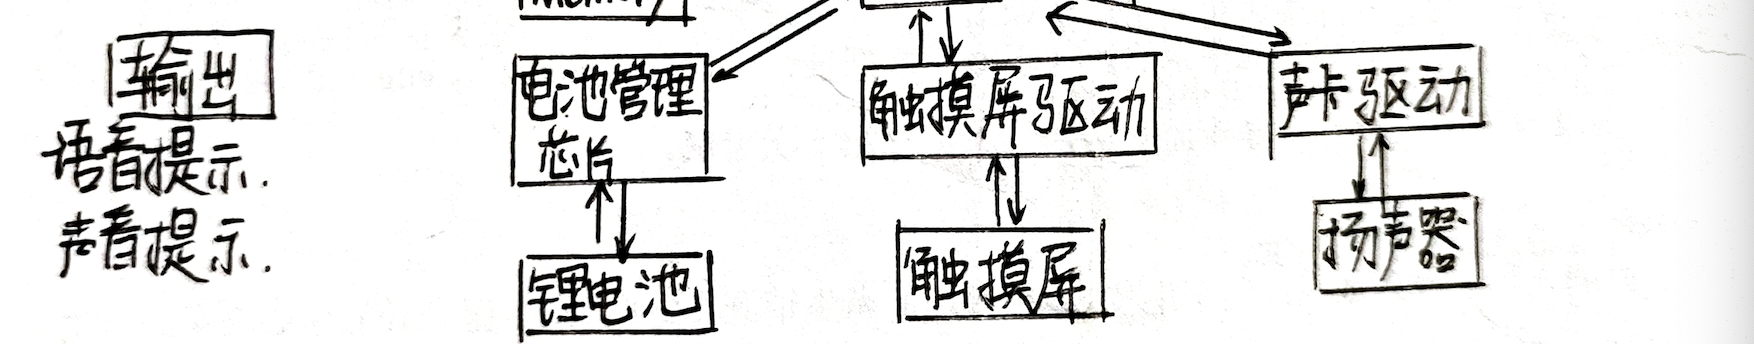 输出
语音提示.
声音提示.
电池管理
芯片
锂电池
触摸屏驱动
触摸屏
声卡驱动
扬声器